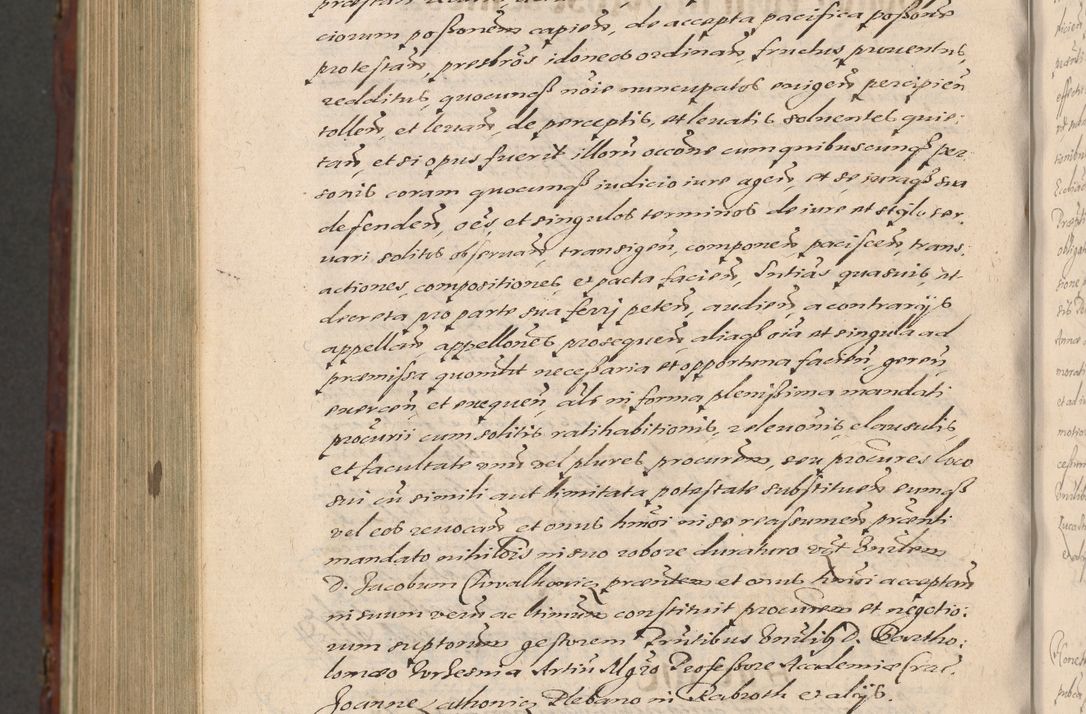 ciorum possonem capien, de accepta pacifica possone
protestan, presbros idoneos ordinan, fructus, prouentus,
redditus, quocunqȝ noie nuncupatos exigen, percipien
tollen, et leuan, de perceptis, et leuatis soluentes quie:
tan, et si opus fuerit illoru occone cum quibuscunqȝ per
sonis coram quocunqȝ iudicio iure agen, et se, iuraqȝ sua
defenden, oes, et singulos terminos de iure et stylo ser,
uari solitos obseruan, transigen, componen, paciscen, trans:
actiones, compositiones, et pacta facien, Sntias quasuis, et
decreta pro parte sua ferrj peten, audien, a contrarijs
appellan, appellones prosequen, aliaqȝ oia et singula ad
præmissa quomlt necessaria et opportuna facien, geren,
exercen, et exequen, als in forma plenissima mandati
procurii cum solitis ratihabitionis, releuonis clausulis,
et facultate vnu vel plures procurem, seu procures loco
sui cu simili aut limitata potestate substituen eumqȝ
vel eos reuocan et onus hmoi in se reassumen prænti
mandato nihilois in suo robore duraturo vzt Vnrlem
D. Jacobum Chwalkowicz præntem et onus hmoi acceptan
in suum verum ac ltimum constituit procurem et negotio:
rum suptorum gestorem Prntibus Vnrlibȝ D. Bartho:
lomæo Artiu Mgro Professore Academiæ Crac.
Joanne Plebano in et alijs.